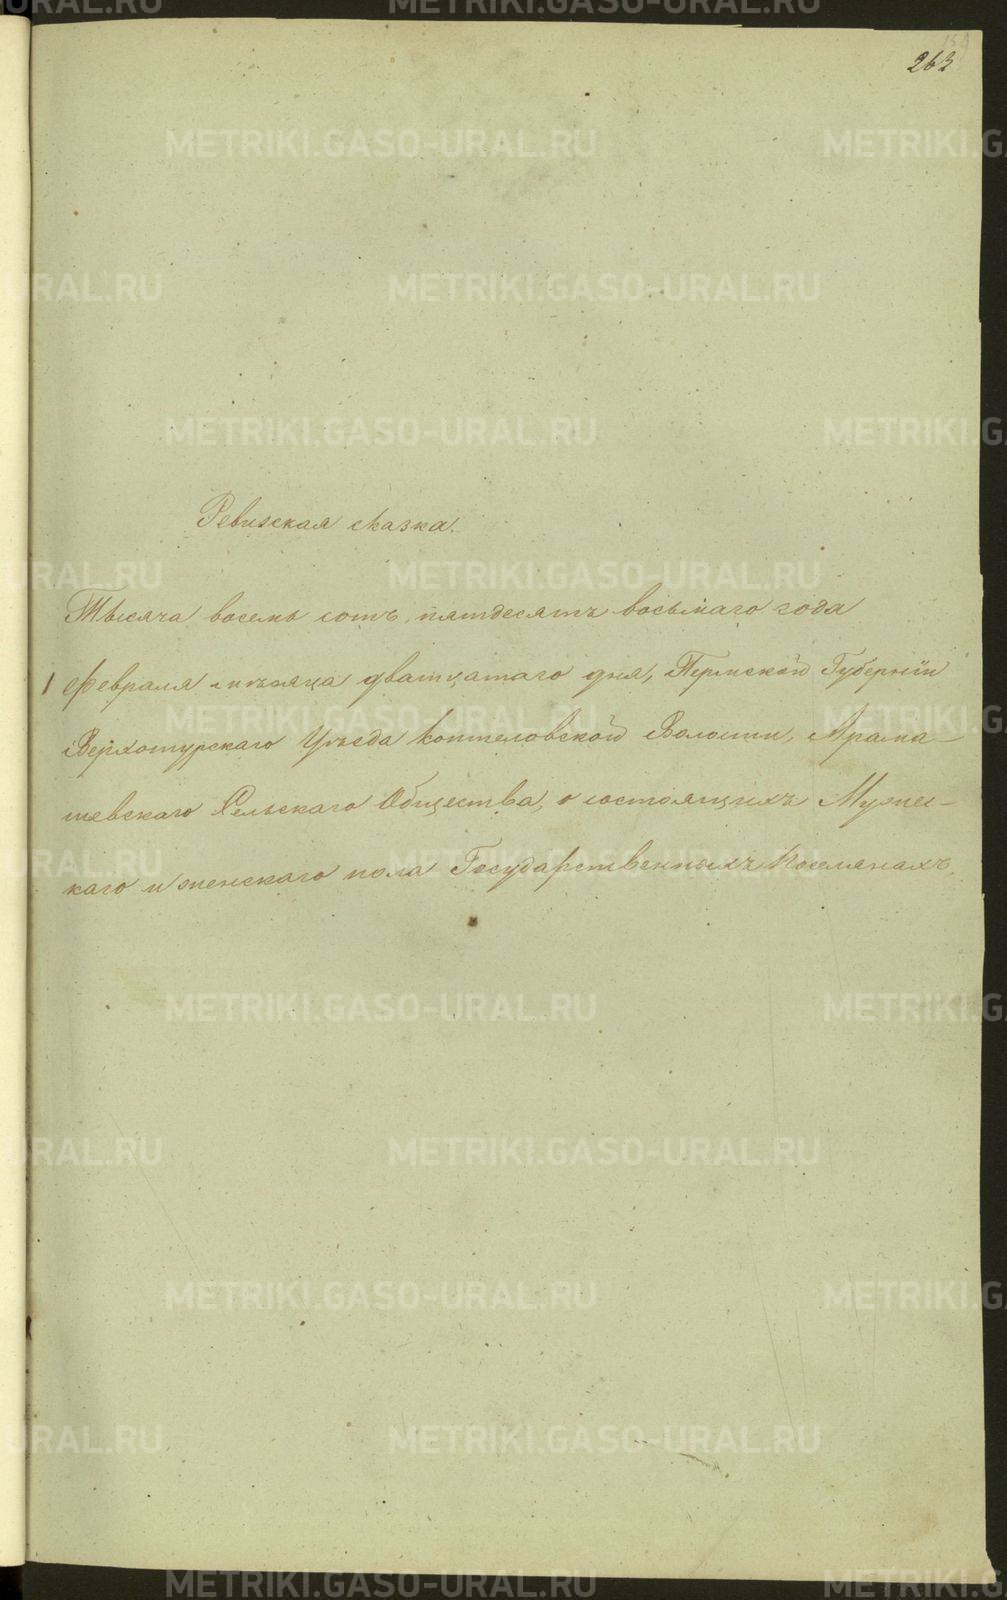 263
Ревизская сказка.
Тысяча восемь сотъ пятдесятъ восьмаго года
февраля мѣсяца дватцатаго дня, Пермской Губерніи
Верхотурскаго Уѣзда Коптеловской Волости, Арама-
шевскаго Сельскаго Общества, о состоящихъ Мужес-
каго и женскаго пола Государственныхъ Поселянахъ.
METRIKI.GASO-URAL.RU